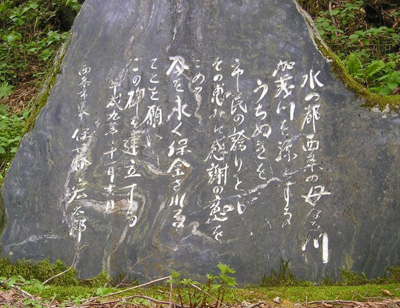 水の都西条の母なる川
加茂川を源とする
うちぬきを
市民の誇りとし
その恵みに感謝の意を
こめて
永く保全される
ことを願い
この碑を建立する
平成九年
西条市長 伊藤宏太郎